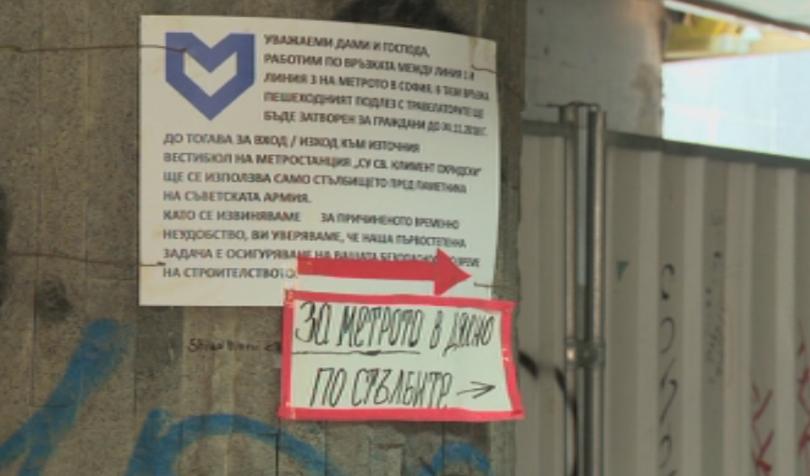 УВАЖАЕМИ ДАМИ И ГОСПОДА,
РАБОТИМ ПО ВРЪЗКАТА МЕЖДУ ЛИНИЯ 1 И
ЛИНИЯ 3 НА МЕТРОТО В СОФИЯ. В ТАЗИ ВРЪЗКА
ПЕШЕХОДНИЯТ ПОДЛЕЗ С ТРАВЕЛАТОРИТЕ ЩЕ
БЪДЕ ЗАТВОРЕН ЗА ГРАЖДАНИ ДО
ДО ТОГАВА ЗА ВХОД / ИЗХОД КЪМ ИЗТОЧНИЯ
ВЕСТИБЮЛ НА МЕТРОСТАНЦИЯ „СУ СВ. КЛИМЕНТ ОХРИДСКИ"
ЩЕ СЕ ИЗПОЛЗВА САМО СТЪЛБИЩЕТО ПРЕД ПАМЕТНИКА
НА СЪВЕТСКАТА АРМИЯ.
КАТО СЕ ИЗВИНЯВАМЕ ЗА ПРИЧИНЕНОТО ВРЕМЕННО
НЕУДОБСТВО, ВИ УВЕРЯВАМЕ, ЧЕ НАША ПЪРВОСТЕПЕННА
ЗАДАЧА Е ОСИГУРЯВАНЕ НА ВАШАТА БЕЗОПАСНОСТ ПО ВРЕМЕ
НА СТРОИТЕЛСТВОТО.
ЗА МЕТРОТО В ДЯСНО
ПО СТЪЛБИТЕ →